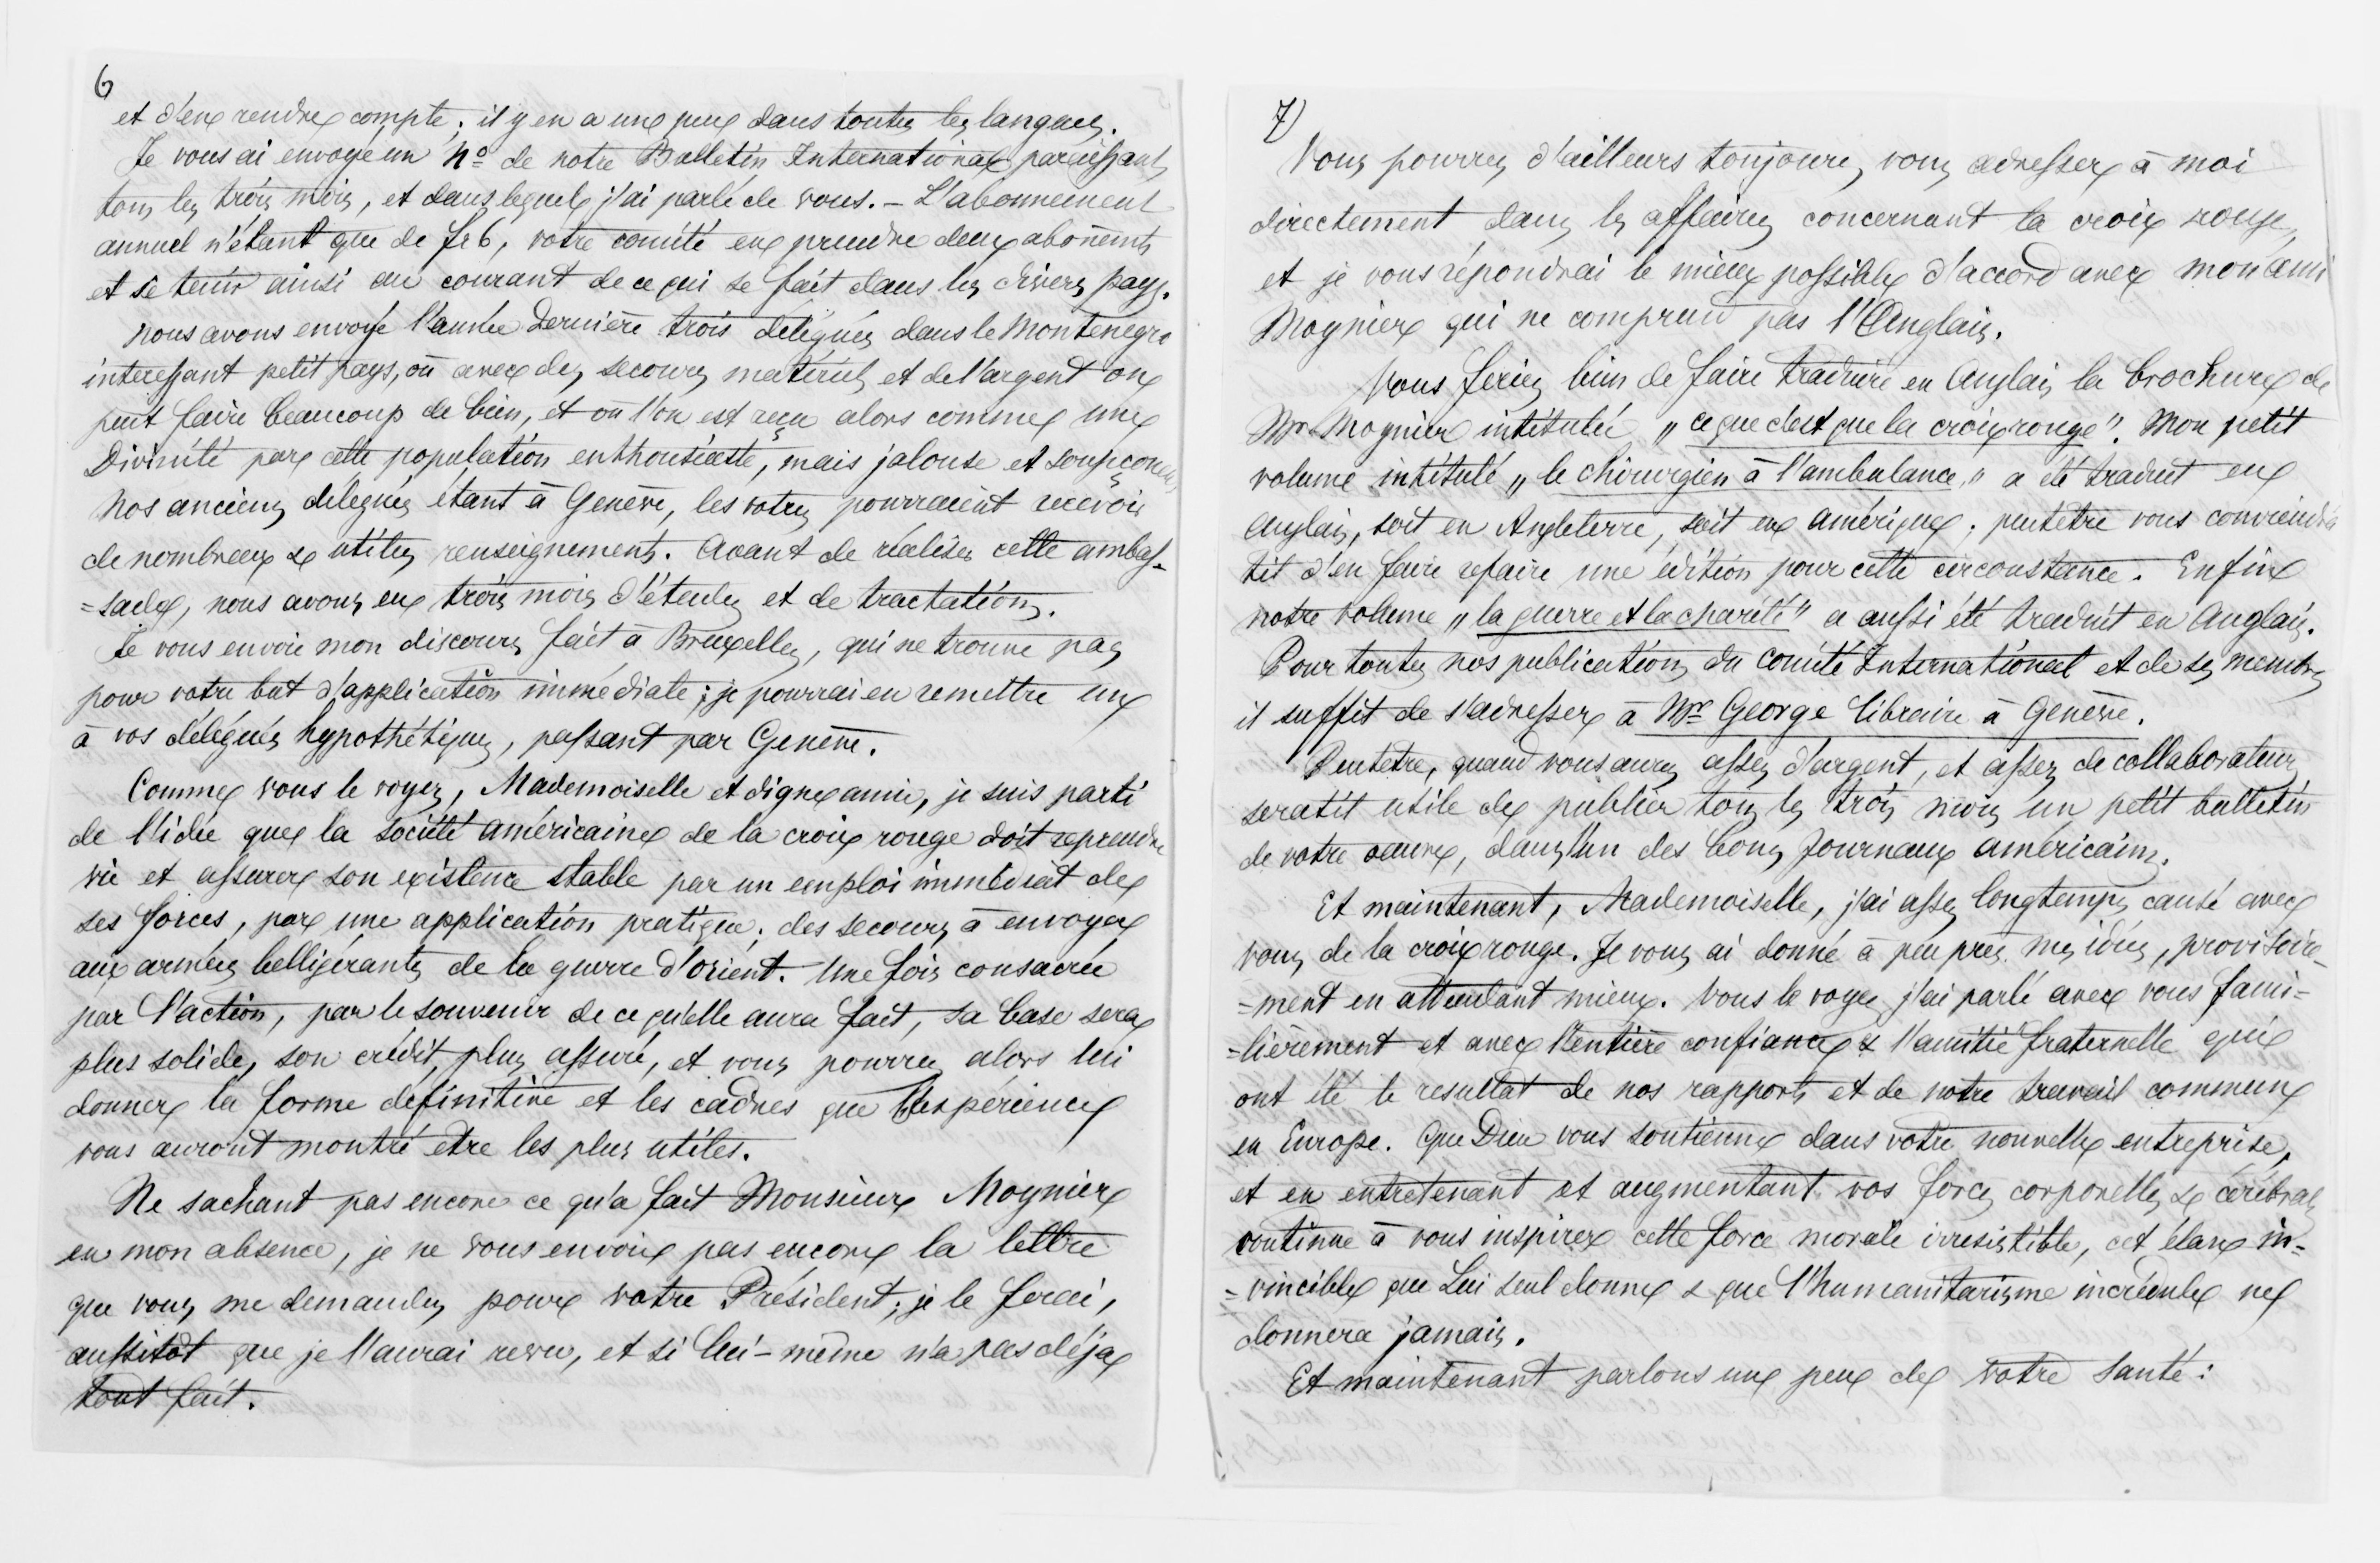 6
et d'en rendre compte; il y en a un peu dans toutes les langues.
Je vous ai envoyé un No de notre Bulletin International paraissant
tous les trois mois, et dans lequel j'ai parlé de vous. – L'abonnement
annuel n'étant que de fr 6, votre comité en prendre deux abonemts
et se tenir ainsi au courant de ce qui se fait dans les divers pays.
Nous avons envoyé l'année dernière trois délégués dans le Montenegro
interessant petit pays, où avec des secours matériels et de l'argent on
peut faire beaucoup de bien, et où l'on est reçu alors comme une
Divinité par cette population enthousiaste, mais jalouse et
Nos anciens délégués étant à Genève, les votres pourraient recevoir
de nombreux & utiles renseignements. Avant de réaliser cette ambas-
=sade, nous avons eu trois mois d'études et de tractations.
Je vous envoie mon discours fait à Bruxelles, qui ne trouve pas
pour votre but d'application immédiate; je pourrai en remettre un
à vos délégués hypothétiques, passant par Genève.
Comme vous le voyez, Mademoiselle et digne amie, je suis parti
de l'idée que la société américaine de la croix rouge doit reprendre
vie et assurer son existence stable par un emploi immédiat de
ses forces, par une application pratique; des secours à envoyer
aux armées belligérantes de la guerre d'orient. Une fois consacrée
par l'action, par le souvenir de ce qu'elle aura fait, sa base sera
plus solide, son crédit plus assuré, et vous pourrez alors lui
donner la forme définitive et les cadres que l'expérience
vous auront montré etre les plus utiles.
Ne sachant pas encore ce qu'a fait Monsieur Moynier
en mon absence, je ne vous envoie pas encore la lettre
que vous me demandez pour votre Président; je le ferai,
aussitôt que je l'aurai revu, et si lui-même n'a pas déja
tout fait.
7)
Vous pourrez d'ailleurs toujours, vous adresser à moi
directement dans les affaires concernant la croix rouge,
et je vous répondrai le mieux possible d'accord avec mon ami
Moynier qui ne comprend pas l'Anglais.
Vous feriez bien de faire traduire en Anglais la brochure de
Mr Moynier intitulée „ce que c'est que la croix rouge". Mon petit
volume intitulé „le chirurgien à l'ambulance" a été traduit en
anglais, soit en Angleterre, soit en amérique; peutetre vous conviendra
tit d'en faire refaire une édition pour cette circonstance. Enfin
notre volume „la guerre et la charité" a aussi été traduit en Anglais.
Pour toutes nos publications du Comité International et de ses membres
il suffit de s'adresser à Mr George libraire à Genève.
Peutetre, quand vous aurez assez d'argent, et assez de collaborateurs
seratit utile de publier tous les trois mois un petit bulletin
de votre oeuvre, dans l'un des bons Journaux américains.
Et maintenant, Mademoiselle, j'ai assez longtemps causé avec
vous de la croix rouge. Je vous ai donné à peu près mes idées, provisoire-
=ment en attendant mieux. Vous le voyez j'ai parlé avec vous fami=
=lièrement et avec l'entière confiance & l'amitié fraternelle qui
ont été le resultat de nos rapports et de notre travail commun
en Europe. Que Dieu vous soutienne dans votre nouvelle entreprise,
et en entretenant et augmentant vos forces corporelles & cérébrales
continue à vous inspirer cette force morale irresistible, cet élan in=
=vincible que Lui seul donne & que l'humanitarisme incrédule ne
donnera jamais.
Et maintenant parlons un peu de votre santé: